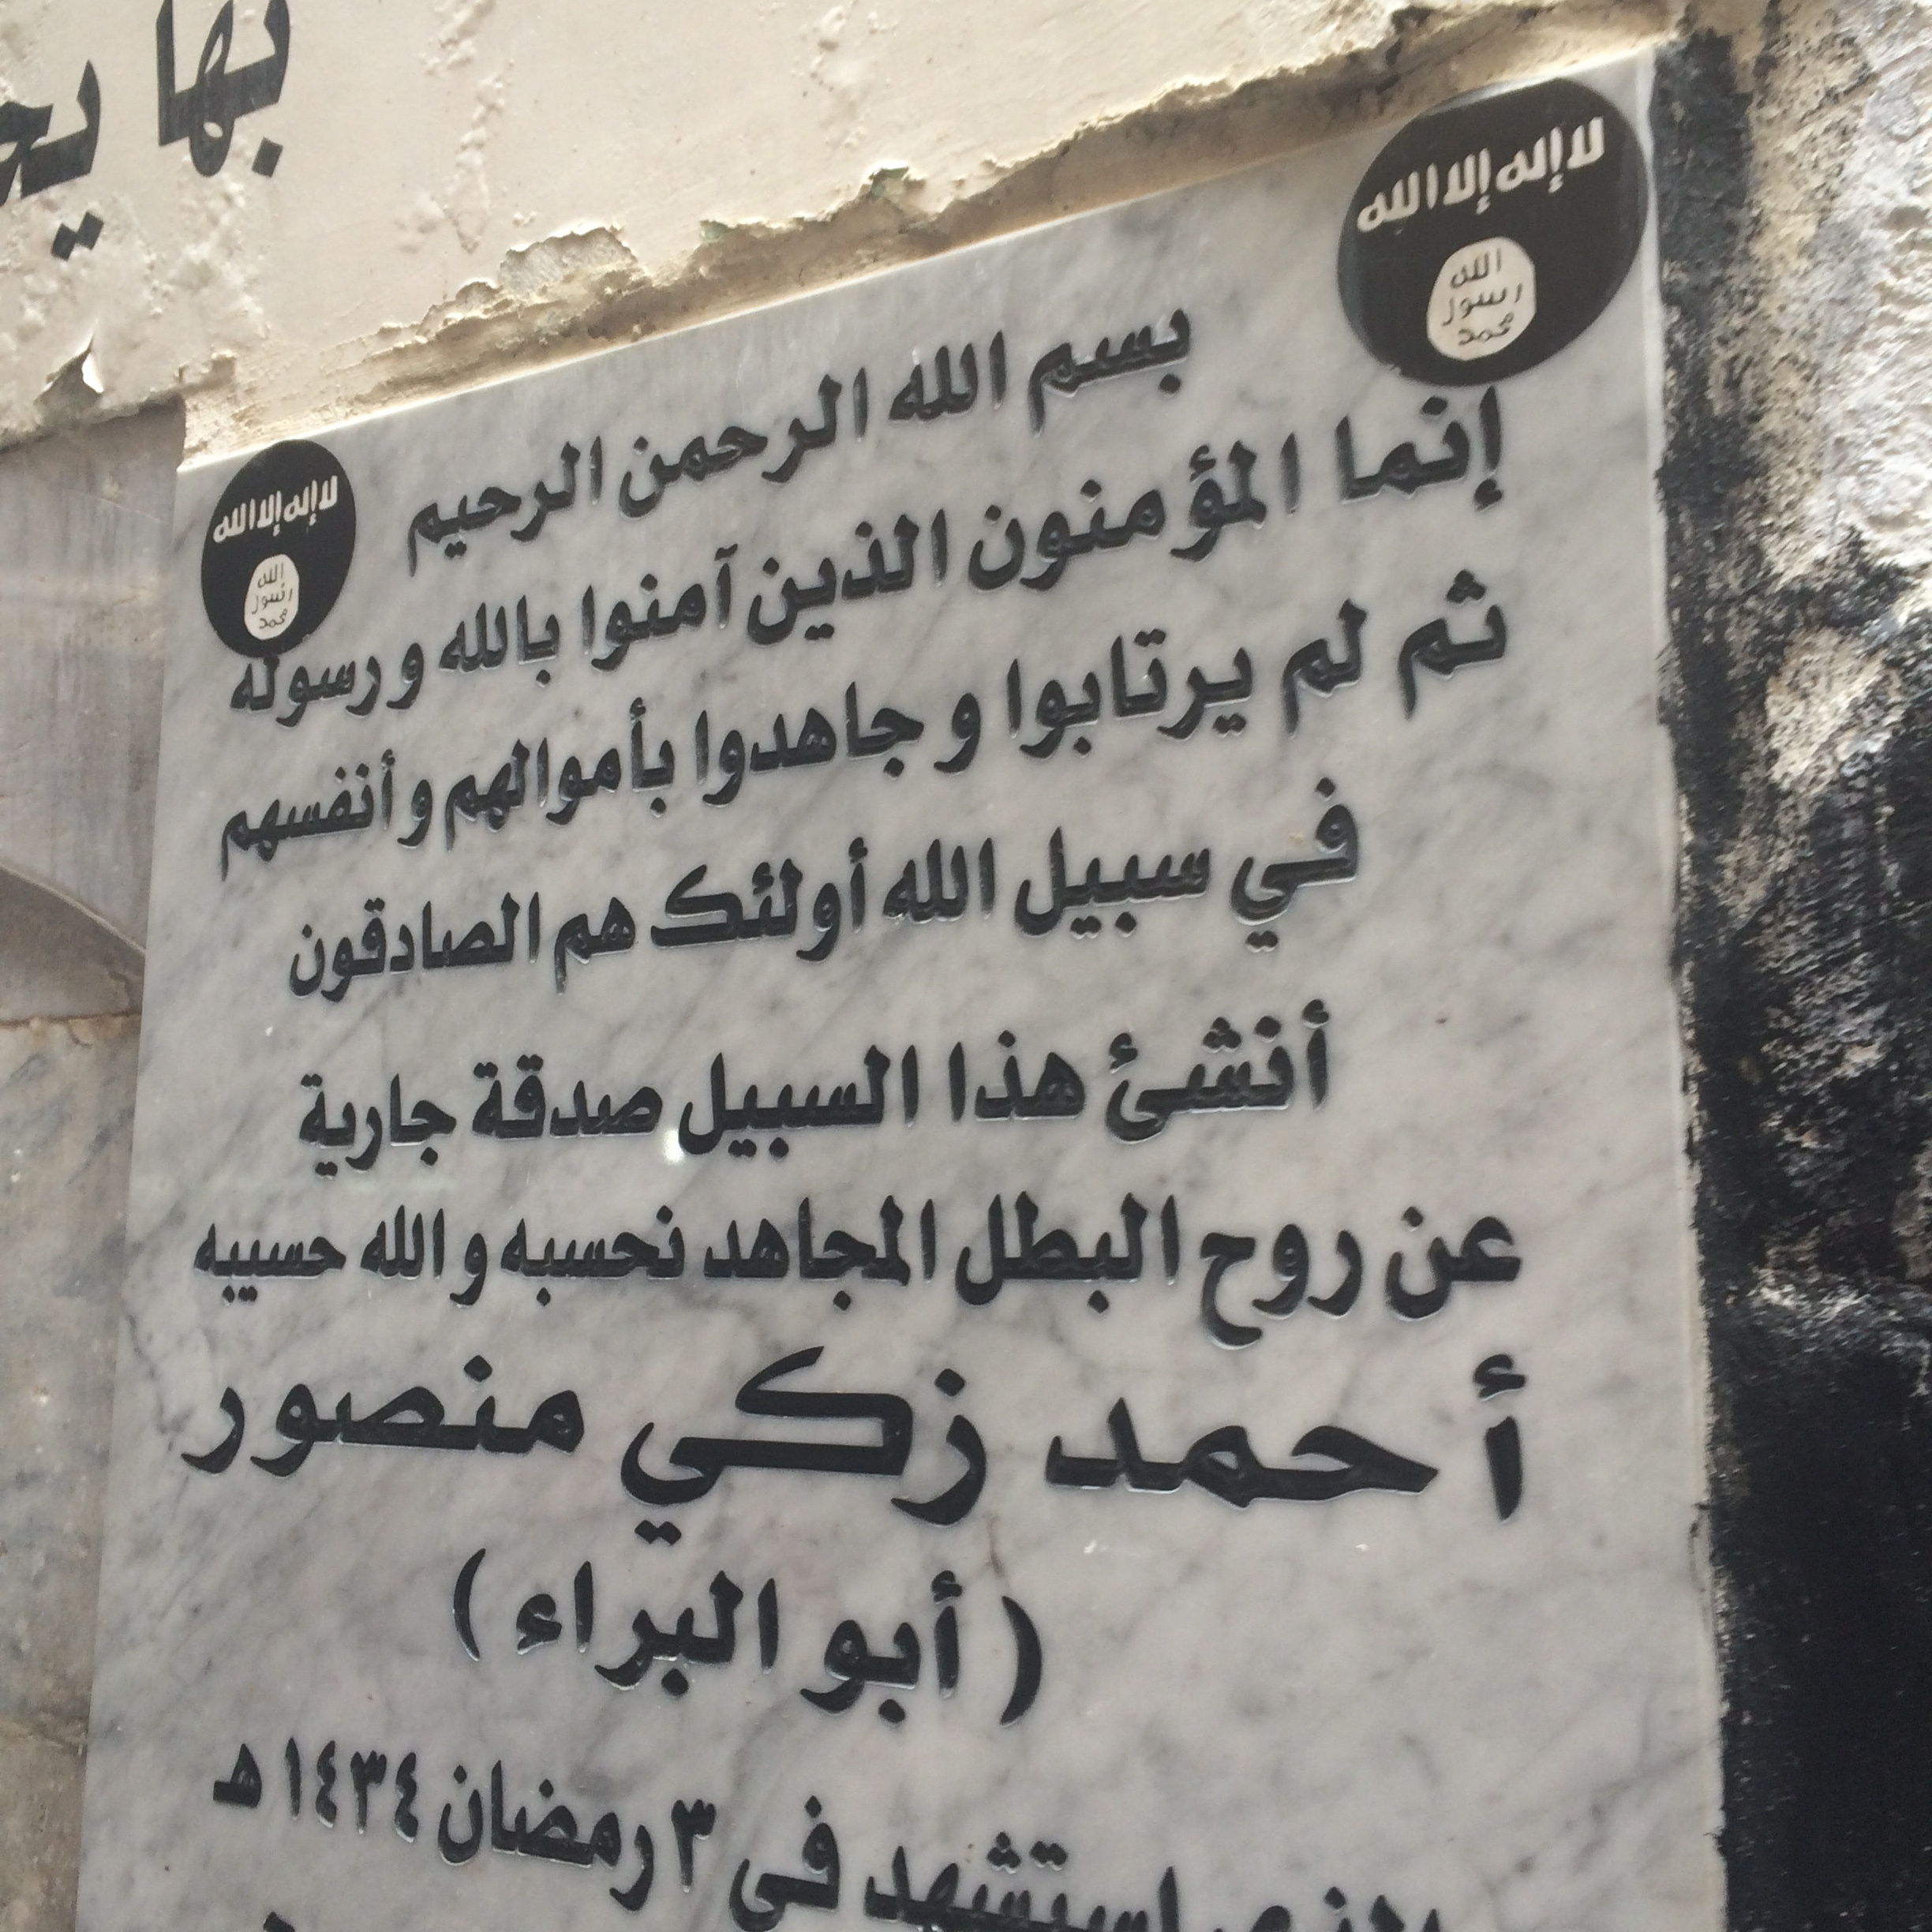 بها
لا إله إلا الله
الله
رسول
محمد
لا إله إلا الله
الله
رسول
محمد
بسم الله الرحمن الرحيم
إنما المؤمنون الذين آمنوا بالله ورسوله
ثم لم يرتابوا و جاهدوا بأموالهم وأنفسهم
في سبيل الله أولئك هم الصادقون
أنشئ هذا السبيل صدقة جارية
عن روح البطل المجاهد نحسبه و الله حسيبه
أحمد زكي منصور
( أبو البراء )
الذي استشهد في ٣ رمضان ١٤٣٤ هـ